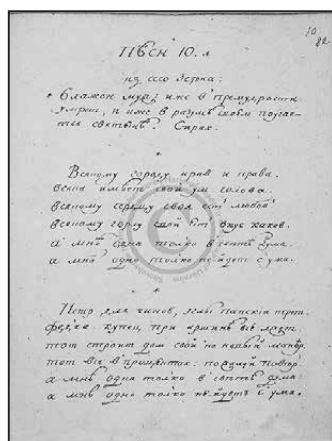 10.
82
Пѣснь 10.я
из сего зерна:
Блажен муж, иже в премудрости
умрет, и иже в разумѣ своем поучает
ся святынѣ. Сирах.
Всякому городу нрав и права.
всяк имѣет свой ум голова.
всякому сердцу своя ест любов
всякому горлу свой ест вкус каков.
а мнѣ одна только в свѣтѣ дума.
а мнѣ одно только нейдет с ума.
Петр для чинов, углы панскіи
Федка купец при аршинѣ все лжет
тот строит дом свой на новый манѣр
тот все в процентах: пожалуй повѣр
а мнѣ одна только в свѣтѣ дума:
а мнѣ одно только нейдетъ с ума.